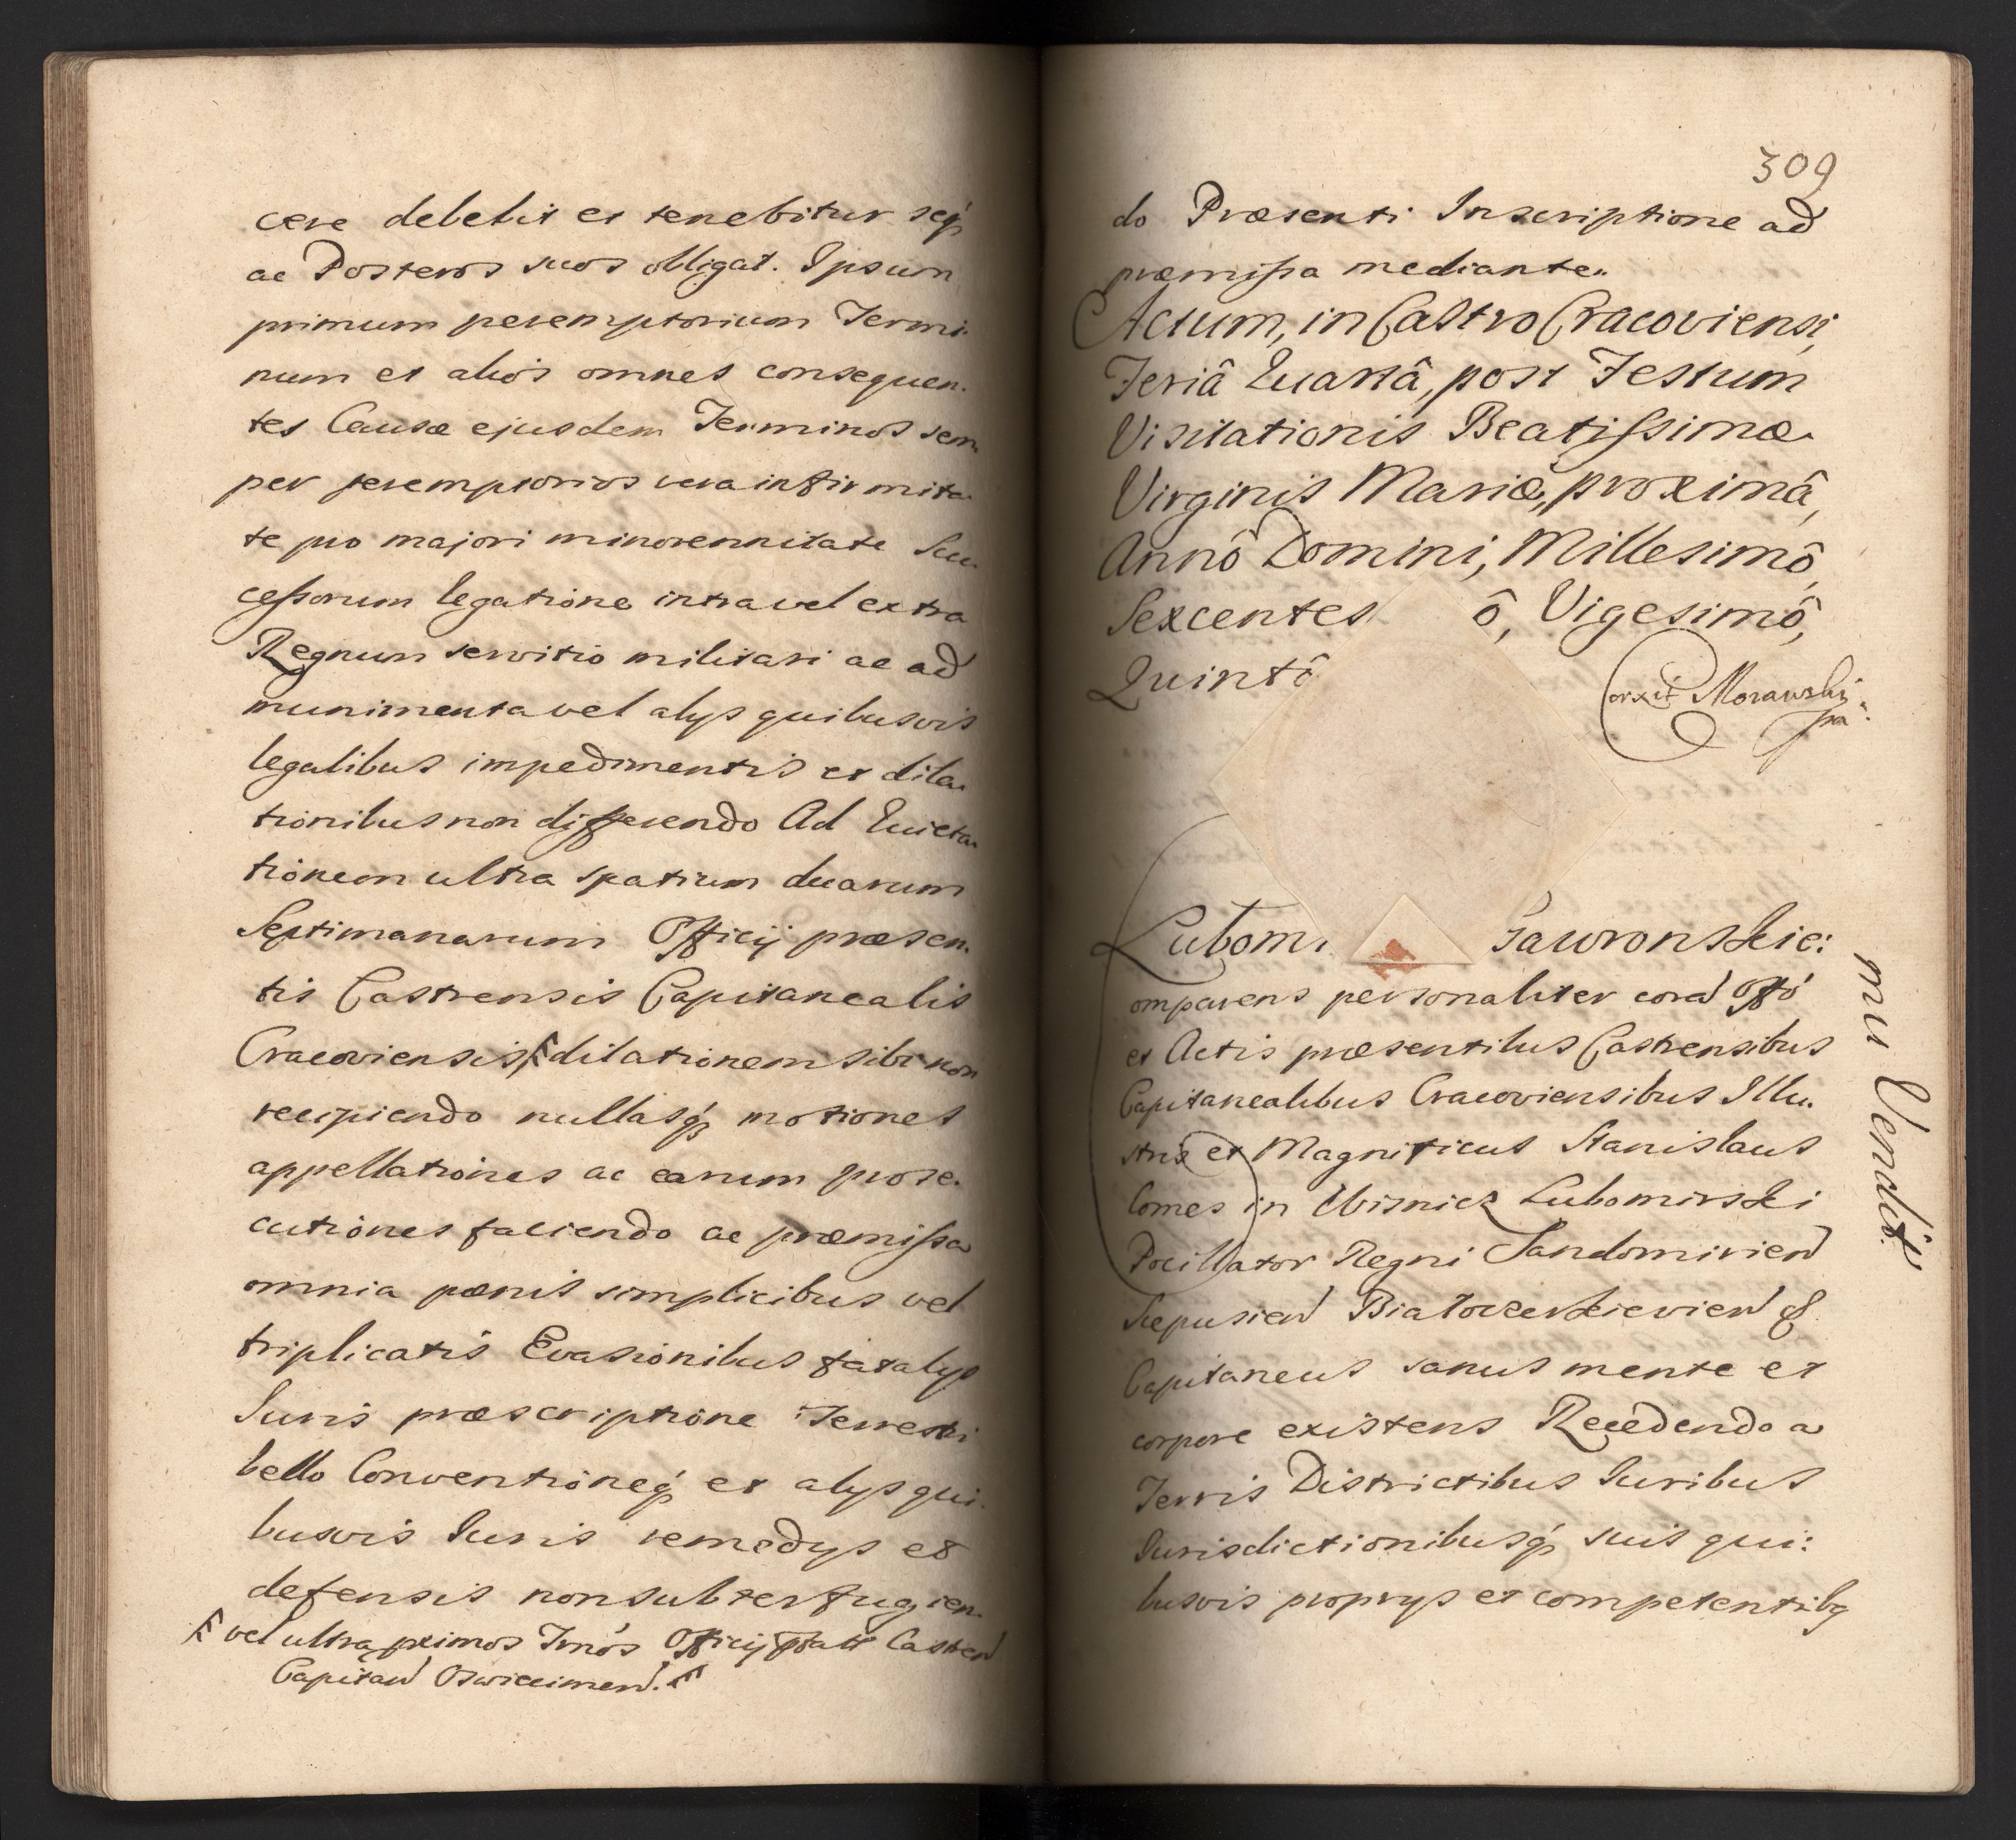 cere debebit et tenebitur seq́
ac Posteros suos obligat. Ipsum
primum peremptorium Termi-
num et alios omnes consequen-
tes Causæ ejusdem Terminos sem-
per peremptorios vera infirmita-
te pro majori minorennitate Suc-
cessorum legatione intra vel extra
Regnum servitio militari ac ad
munimenta vel alijs quibusvis
legalibus impedimentis et dila-
tionibus non differendo Ad Evicta-
tionem ultra spatium duarum
Septimanarum Officij præsen-
tis Castrensis Capitanealis
Cracoviensis dilationem sibi non
recipiendo nullasq́ motiones
appellationes ac earum prose-
cutiones faciendo ac præmissa
omnia pœnis simplicibus vel
triplicatis Evasionibus fatalijs
Juris præscriptione Terrestri
bello Conventioneq́ et alijs qui-
busvis Juris remedijs et
defensis non subterfugien-
vel ultra primos Trnós Officij Castren
Capitan Oswiecimen.
309
do Præsenti Inscriptione ad
præmissa mediante.
Actum, in Castro Cracoviensi,
Feriâ Quartâ, post Festum
Visitationis Beatissimæ
Virginis Mariæ, proximâ,
Annô Domini, Millesimô,
Sexcentes ô, Vigesimô,
Quintô
Corxit Morawski
Lubomi Gawronskie:
omparens personaliter coram Offó
et Actis præsentibus Castrensibus
Capitanealibus Cracoviensibus Illu-
stris et Magnificus Stanislaus
Comes in Wisnicz Lubomirski
Pocillator Regni Sandomirien
Scepusien Białocerkievien &
Capitaneus sanus mente et
corpore existens Recedendo a
Terris Districtibus Juribus
Jurisdictionibusq́ suis qui:
busvis proprijs et competentibq
mu Vendit